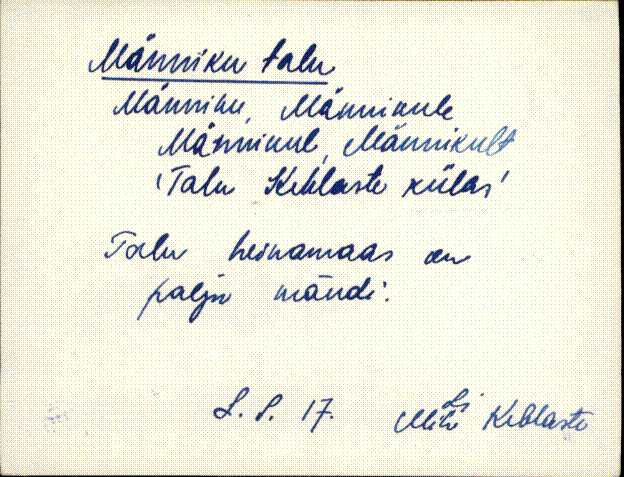 Männiku talu
Männiku, Männikule
Männikul, Männikult
'Talu Keblaste külas'
Talu heinamaas on
palju mände.
S. S. 17.
Li
Mihkli Keblaste